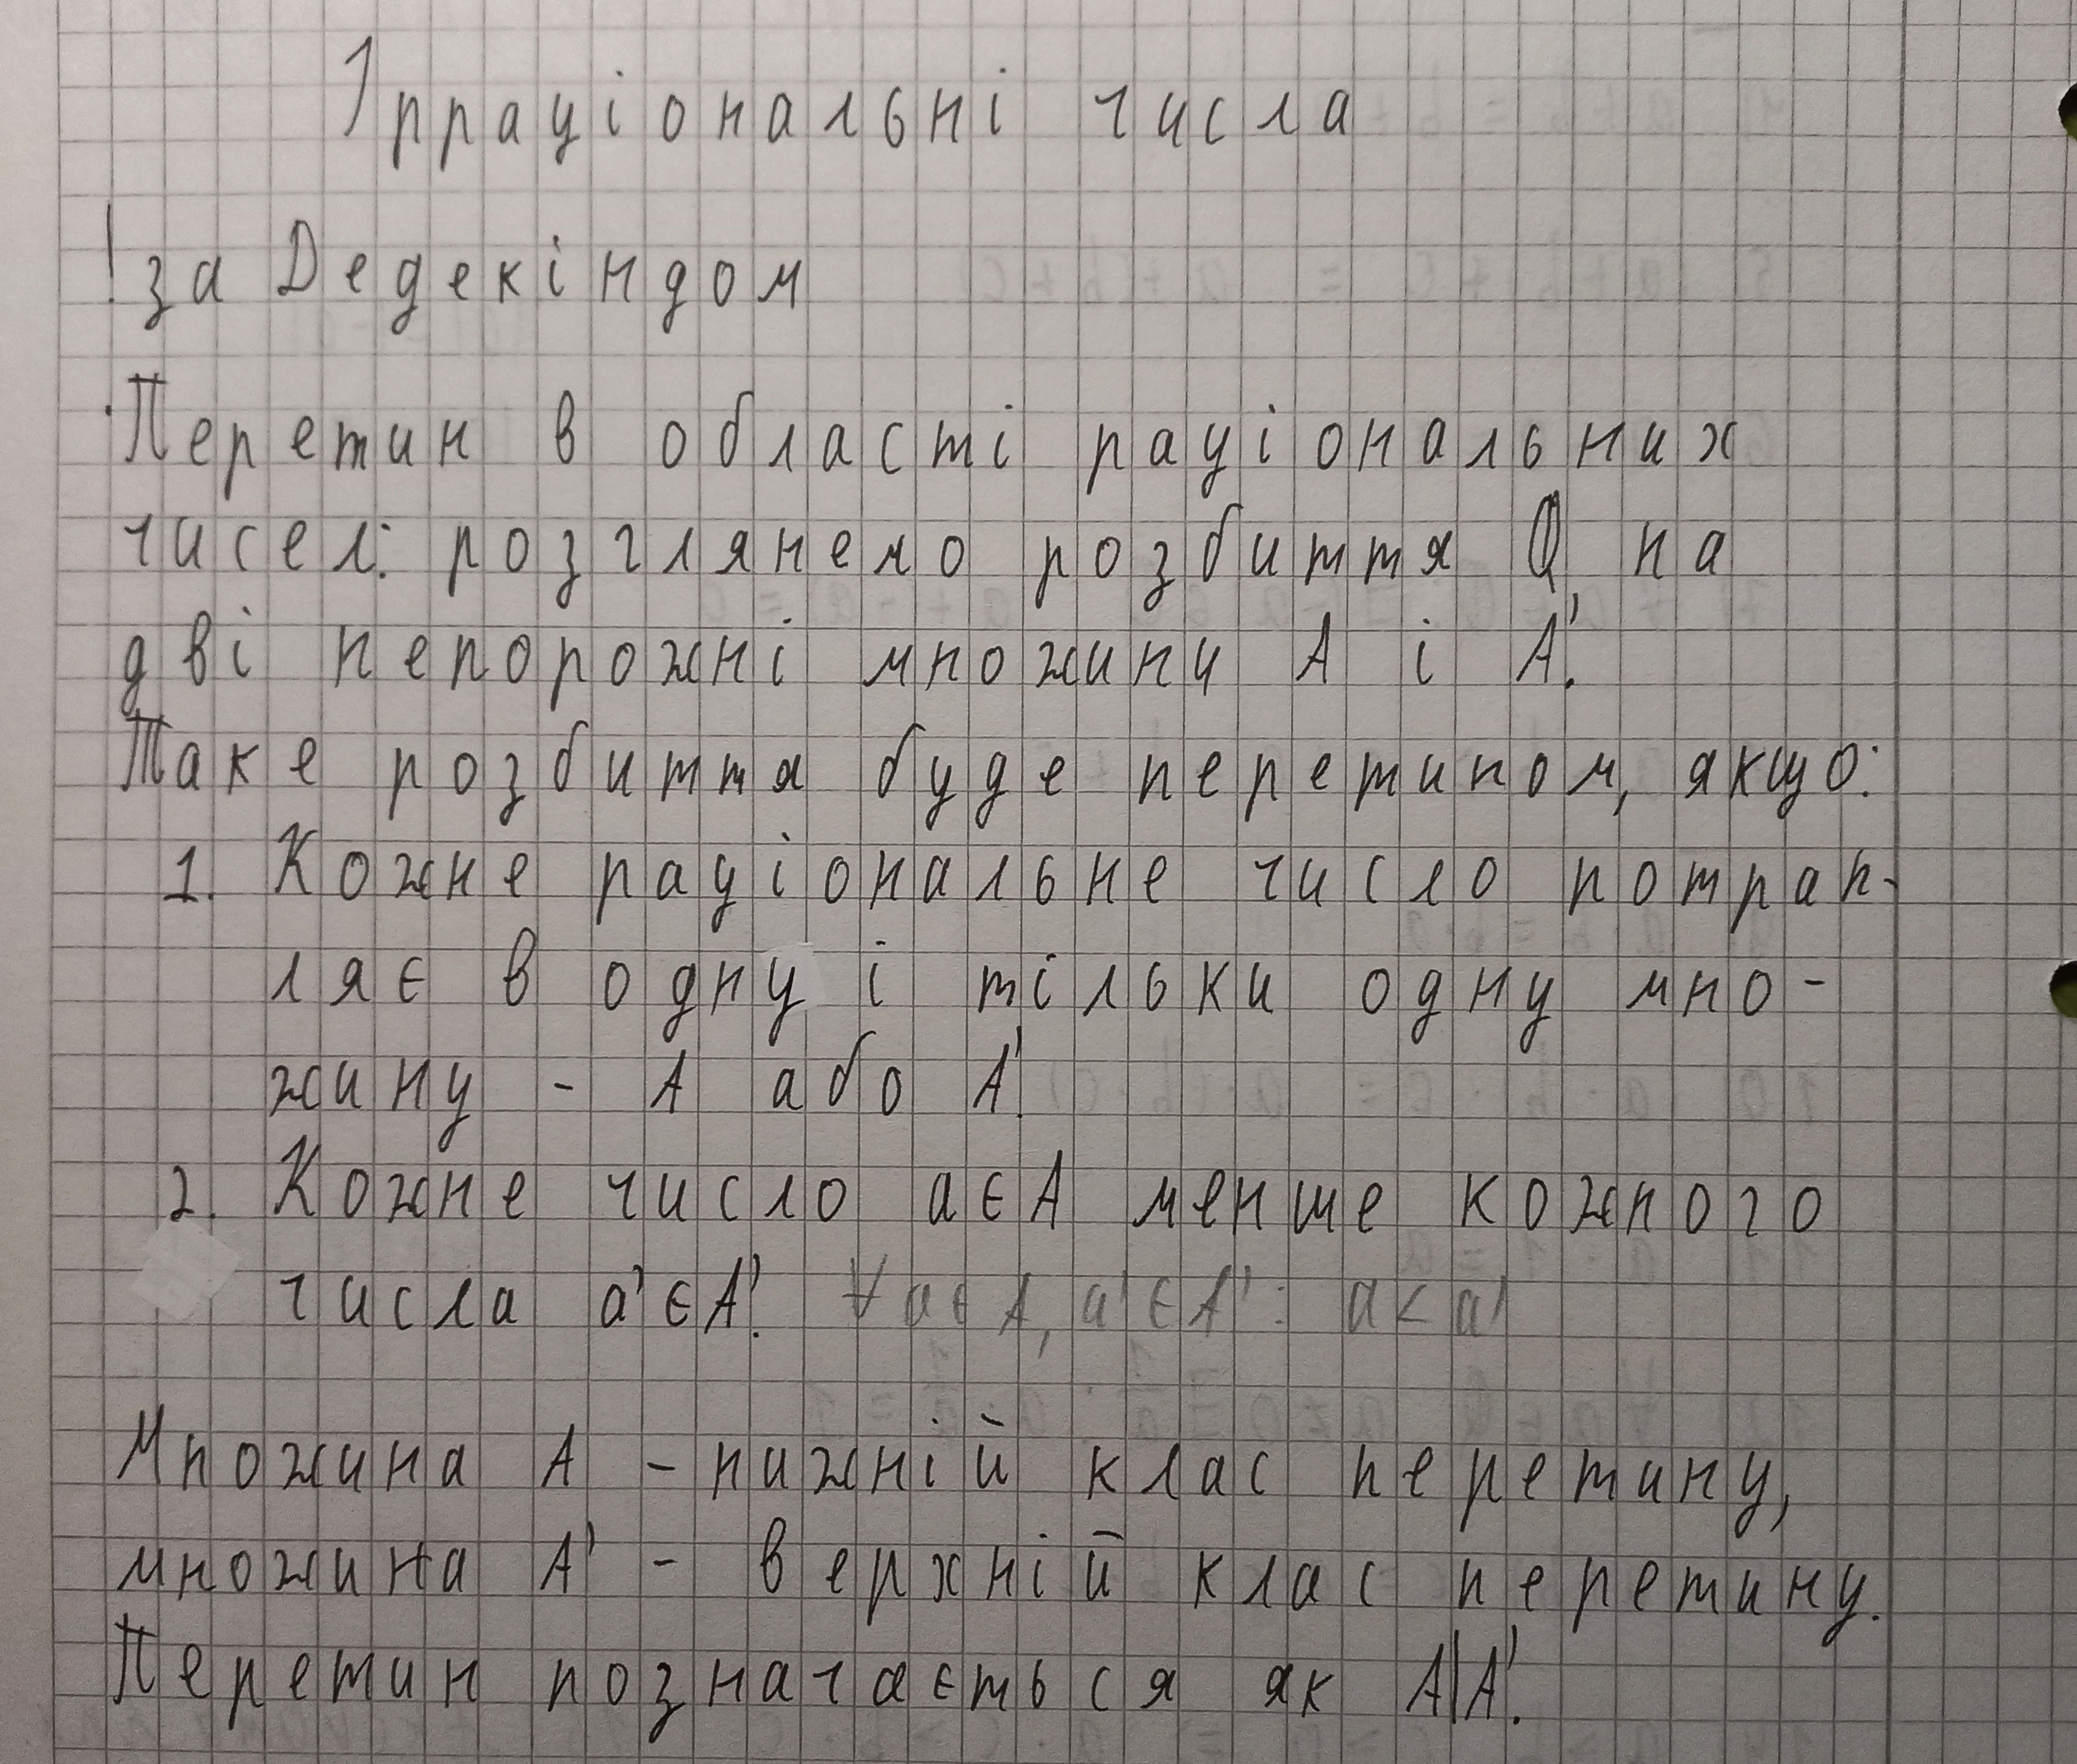 Ірраціональні числа
! за Дедекіндом
·Перетин в області раціональних
чисел: розглянемо розбиття Q на
дві непорожні множини A і A'.
Таке розбиття буде перетином, якщо:
1. Кожне раціональне число потрап-
ляє в одну і тільки одну мно-
жину - A або A'.
2. Кожне число a∈A менше кожного
числа a'∈A'. ∀a∈A, a'∈A': a<a'
Множина A - нижній клас перетину,
множина A' - верхній клас перетину.
Перетин позначається як A|A'.